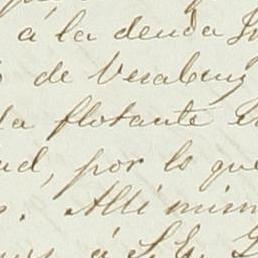 á la deuda
de Veraluz
la flotante
ud, por lo que
. Alli mism
á S. E.